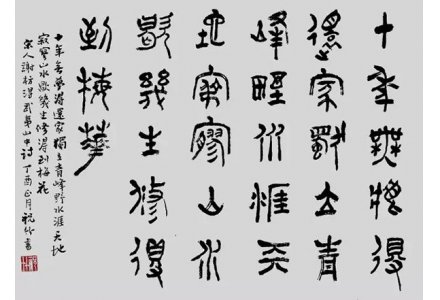 十年無夢得
還家獨立青
峰野水涯天
地寂寥山水
歇幾生修得
到梅華
十年無夢得還家獨立青峰野水涯天地
寂寥山水歇幾生修得到梅花
宋人謝枋得武夷山中詩 丁酉正月 祝竹書